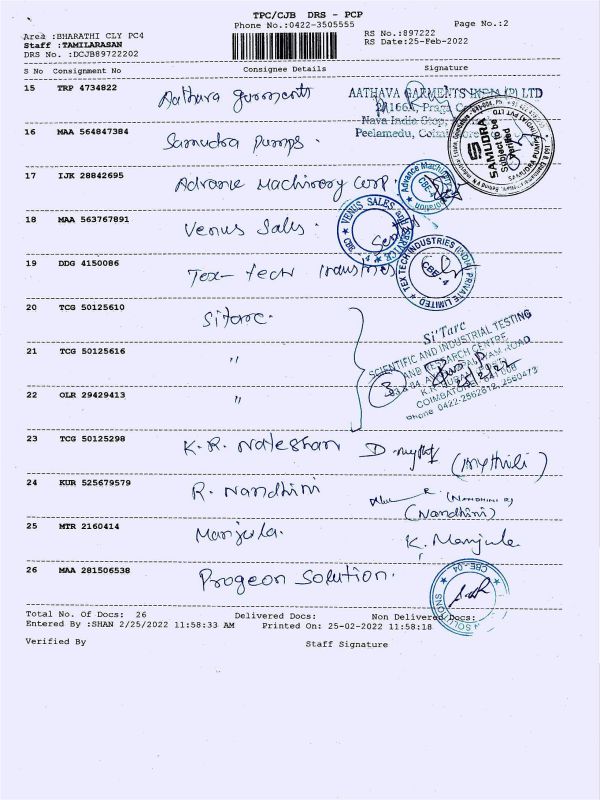 TPC/CJB DRS - PCP
Phone No.:0422-3505555
Page No.:2
Area :BHARATHI CLY PC4
Staff :TAMILARASAN
DRS No. :DCJB89722202
RS No.:897222
RS Date:25-Feb-2022
S No Consignment No Consignee Details Signature
15 TRP 4734822 Aathava garments
AATHAVA GARMENTS INDIA (P) LTD
Peelamedu,
16 MAA 564847384 Samudra Pumps.
SAMUDRA
Subject to be
Verified
17 IJK 28842695 Advance Machinery Corp
Advance Machinery
CBE-4
18 MAA 563767891 Venus Sales.
VENUS SALES
CBE
19 DDG 4150086 Tex-tech industries
TEX TECH INDUSTRIES (INDIA) PRIVATE LIMITED
CBE-4
20 TCG 50125610 Sitarc.
21 TCG 50125616 "
22 OLR 29429413 "
Si'Tarc
SCIENTIFIC AND INDUSTRIAL TESTING
AND RESEARCH CENTRE
COIMBATORE - 641 006
Phone 0422-2562612, 2560473
23 TCG 50125298 K.R. Nateshan (Mythili)
24 KUR 525679579 R. Nandhini (NANDHINI R)
(Nandhini)
25 MTR 2160414 Manjula. K. Manjula
26 MAA 281506538 Progeon Solution.
CBE-04
SOLUTIONS
Total No. Of Docs: 26 Delivered Docs: Non Delivered Docs:
Entered By :SHAN 2/25/2022 11:58:33 AM Printed On: 25-02-2022 11:58:18
Verified By Staff Signature